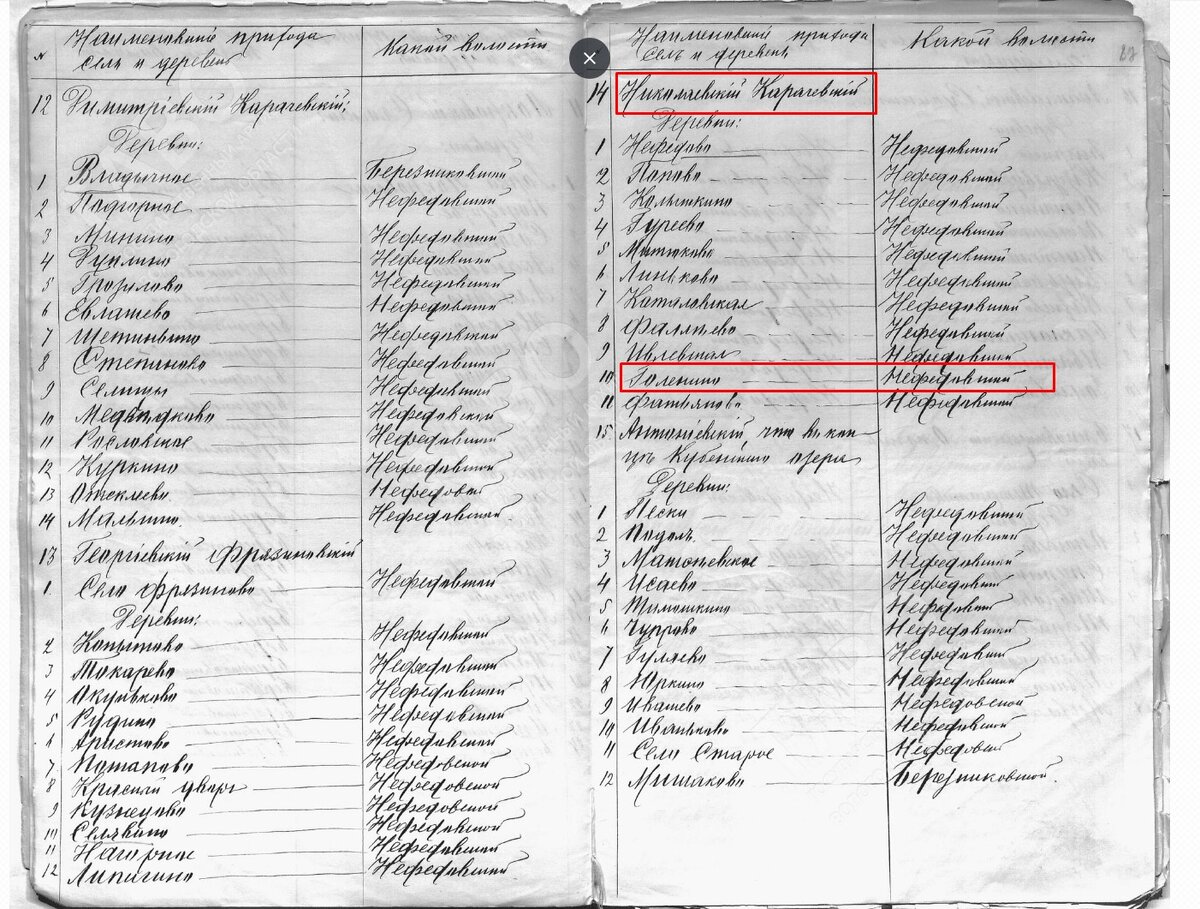 № Наименованiй прихода Какой волости
селъ и деревень
12 Димитрiевскiй Карачевскiй:
Деревни:
1 Владычное Березниковской
2 Подгорное Нефедовской
3 Минино Нефедовской
4 Нефедовской
5 Грозилово Нефедовской
6 Евлашево Нефедовской
7 Щетинино Нефедовской
8 Степыново Нефедовской
9 Селищи Нефедовской
10 Медведково Нефедовской
11 Рословское Нефедовской
12 Куркино Нефедовской
13 Отеклево Нефедовской
14 Малыгино Нефедовской
13 Георгiевскiй Фрязиновскiй
1 Село Фрязиново Нефедовской
Деревни:
2 Копытово Нефедовской
3 Токарево Нефедовской
4 Окулково Нефедовской
5 Рудино Нефедовской
6 Аристово Нефедовской
7 Потапово Нефедовской
8 Красный дворъ Нефедовской
9 Кузнецово Нефедовской
10 Селякино Нефедовской
11 Нагорное Нефедовской
12 Липигино Нефедовской
Наименованiй прихода Какой волости 27
селъ и деревень
14 Николаевскiй Карачевскiй
Деревни:
1 Нефедово Нефедовской
2 Попово Нефедовской
3 Колышкино Нефедовской
4 Гуреево Нефедовской
5 Матюково Нефедовской
6 Линьково Нефедовской
7 Каталовская Нефедовской
8 Фалелево Нефедовской
9 Ивлевская Нефедовской
10 Голенино Нефедовской
11 Фатьяново Нефедовской
15 Антонiевскiй, что въ кон-
цѣ Кубенскаго озера
Деревни:
1 Пески Нефедовской
2 Подолъ Нефедовской
3 Матонское Нефедовской
4 Исаево Нефедовской
5 Тимошкино Нефедовской
6 Чурово Нефедовской
7 Гуляево Нефедовской
8 Юркино Нефедовской
9 Ивашево Нефедовской
10 Иваньково Нефедовской
11 Село Старое Нефедовской
12 Мишаково Березниковской.